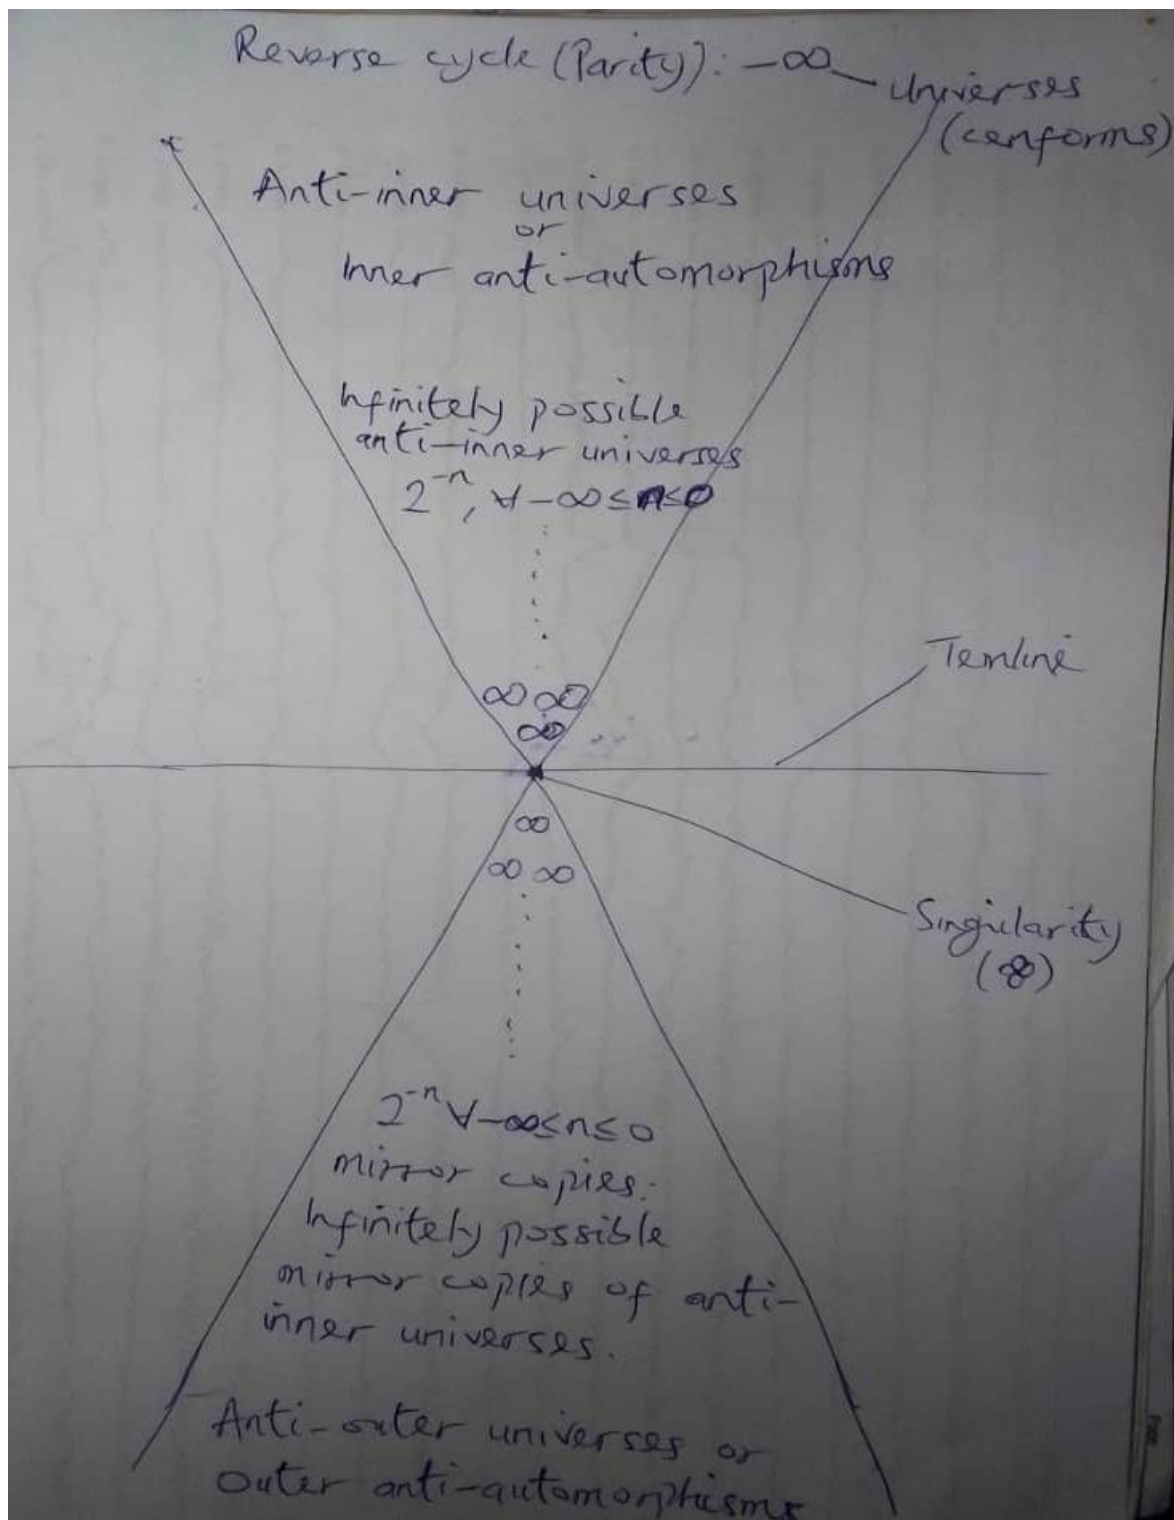 Reverse cycle (Parity): -∞
Universes
(cenforms)
Anti-inner universes
or
Inner anti-automorphisms
Infinitely possible
anti-inner universes
2⁻ⁿ, ∀ -∞ ≤ n ≤ 0
∞ ∞
∞
Temline
∞
∞ ∞
Singularity
(∞)
2⁻ⁿ ∀ -∞ ≤ n ≤ 0
mirror copies.
Infinitely possible
mirror copies of anti-
inner universes.
Anti-outer universes or
outer anti-automorphisms